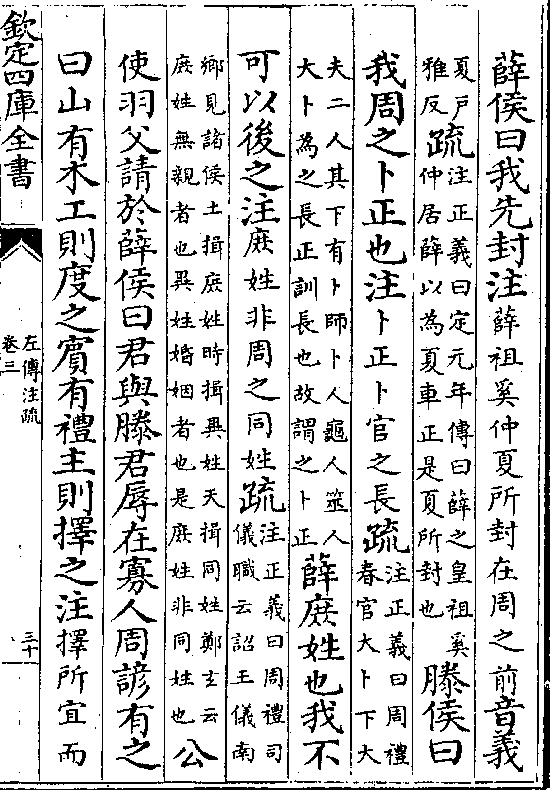 薛侯曰我先封注薛祖奚仲夏所封在周之前音義
夏戸雅反疏注正義曰定元年傳曰薛之皇祖奚仲居薛以為夏車正是夏所封也滕侯曰
我周之卜正也注卜正卜官之長疏注正義曰周禮春官大卜下大
夫二人其下有卜師卜人龜人筮人大卜為之長正訓長也故謂之卜正薛庶姓也我不
可以後之注庶姓非周之同姓疏注正義曰周禮司儀職云詔王儀南
鄉見諸侯土揖庶姓時揖異姓天揖同姓鄭玄云庶姓無親者也異姓婚姻者也是庶姓非同姓也公
使羽父請於薛侯曰君與滕君辱在寡人周諺有之
曰山有木工則度之賔有禮主則擇之注擇所宜而
欽定四庫全書
左傳注疏
卷三
三十